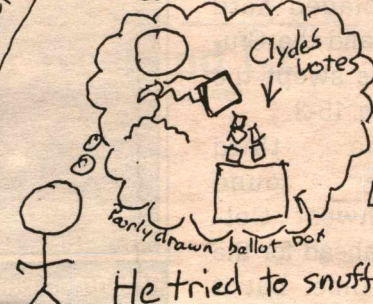 Clydes
votes
Poorly drawn ballot box
He tried to snuff